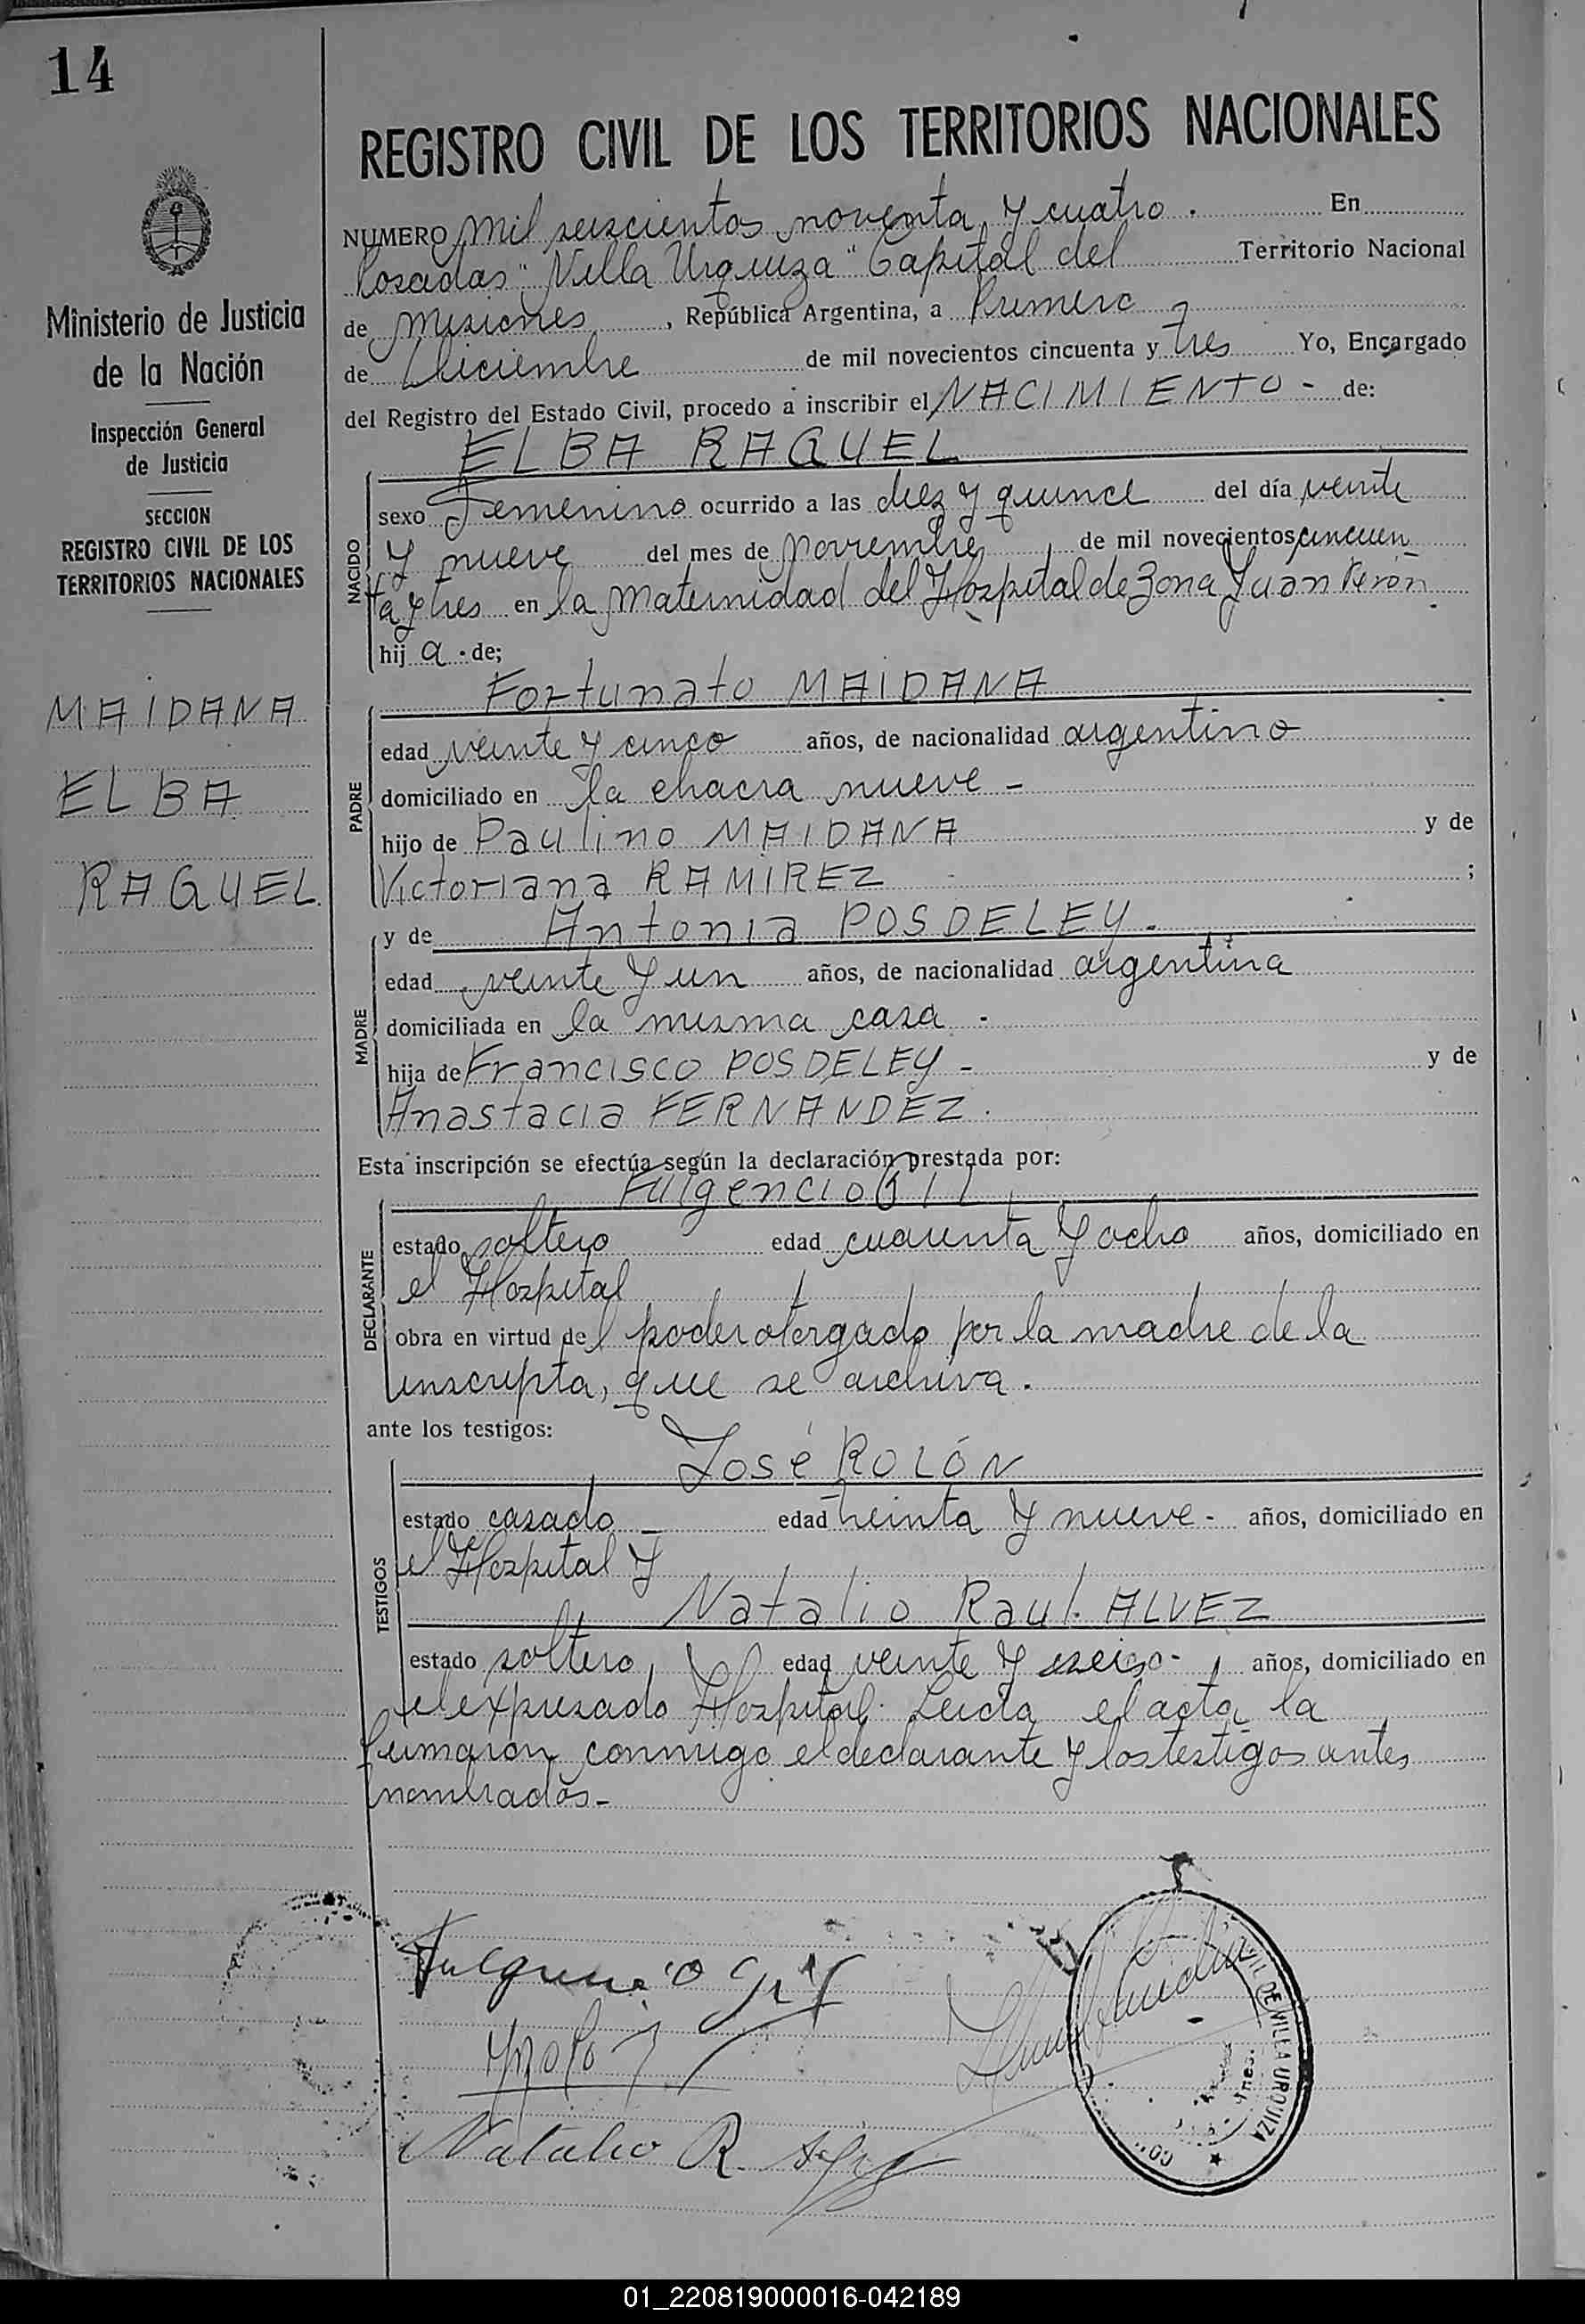 14
Ministerio de Justicia
de la Nación
Inspección General
de Justicia
SECCION
REGISTRO CIVIL DE LOS
TERRITORIOS NACIONALES
MAIDANA
ELBA
RAQUEL
REGISTRO CIVIL DE LOS TERRITORIOS NACIONALES
NUMERO Mil seiscientos noventa y cuatro. En
Posadas "Villa Urquiza" Capital del Territorio Nacional
de Misiones, República Argentina, a Primero
de Diciembre de mil novecientos cincuenta y tres Yo, Encargado
del Registro del Estado Civil, procedo a inscribir el NACIMIENTO - de:
ELBA RAQUEL
NACIDO
sexo Femenino ocurrido a las diez y quince del día veinte
y nueve del mes de Noviembre de mil novecientos cincuen
ta y tres en la Maternidad del Hospital de Zona Juan Perón.
hij a. de;
Fortunato MAIDANA
PADRE
edad veinte y cinco años, de nacionalidad argentino
domiciliado en la chacra nueve -
hijo de Paulino MAIDANA y de
Victoriana RAMIREZ ;
MADRE
y de Antonia POSDELEY.
edad veinte y un años, de nacionalidad argentina
domiciliada en la misma casa -
hija de Francisco POSDELEY - y de
Anastacia FERNANDEZ.
Esta inscripción se efectúa según la declaración prestada por:
Fulgencio Gil
DECLARANTE
estado soltero edad cuarenta y ocho años, domiciliado en
el Hospital
obra en virtud del poder otorgado por la madre de la
inscripta, que se archiva.
ante los testigos:
José ROLÓN
TESTIGOS
estado casado - edad treinta y nueve - años, domiciliado en
el Hospital y
Natalio Raul. ALVEZ
estado soltero, edad veinte y años, domiciliado en
el expresado Hospital. Leida el acta la
firmaron conmigo el declarante y los testigos antes
nombrados-
Fulgencio Gil
Natalio R.
CIVIL DE VILLA URQUIZA
01_220819000016-042189